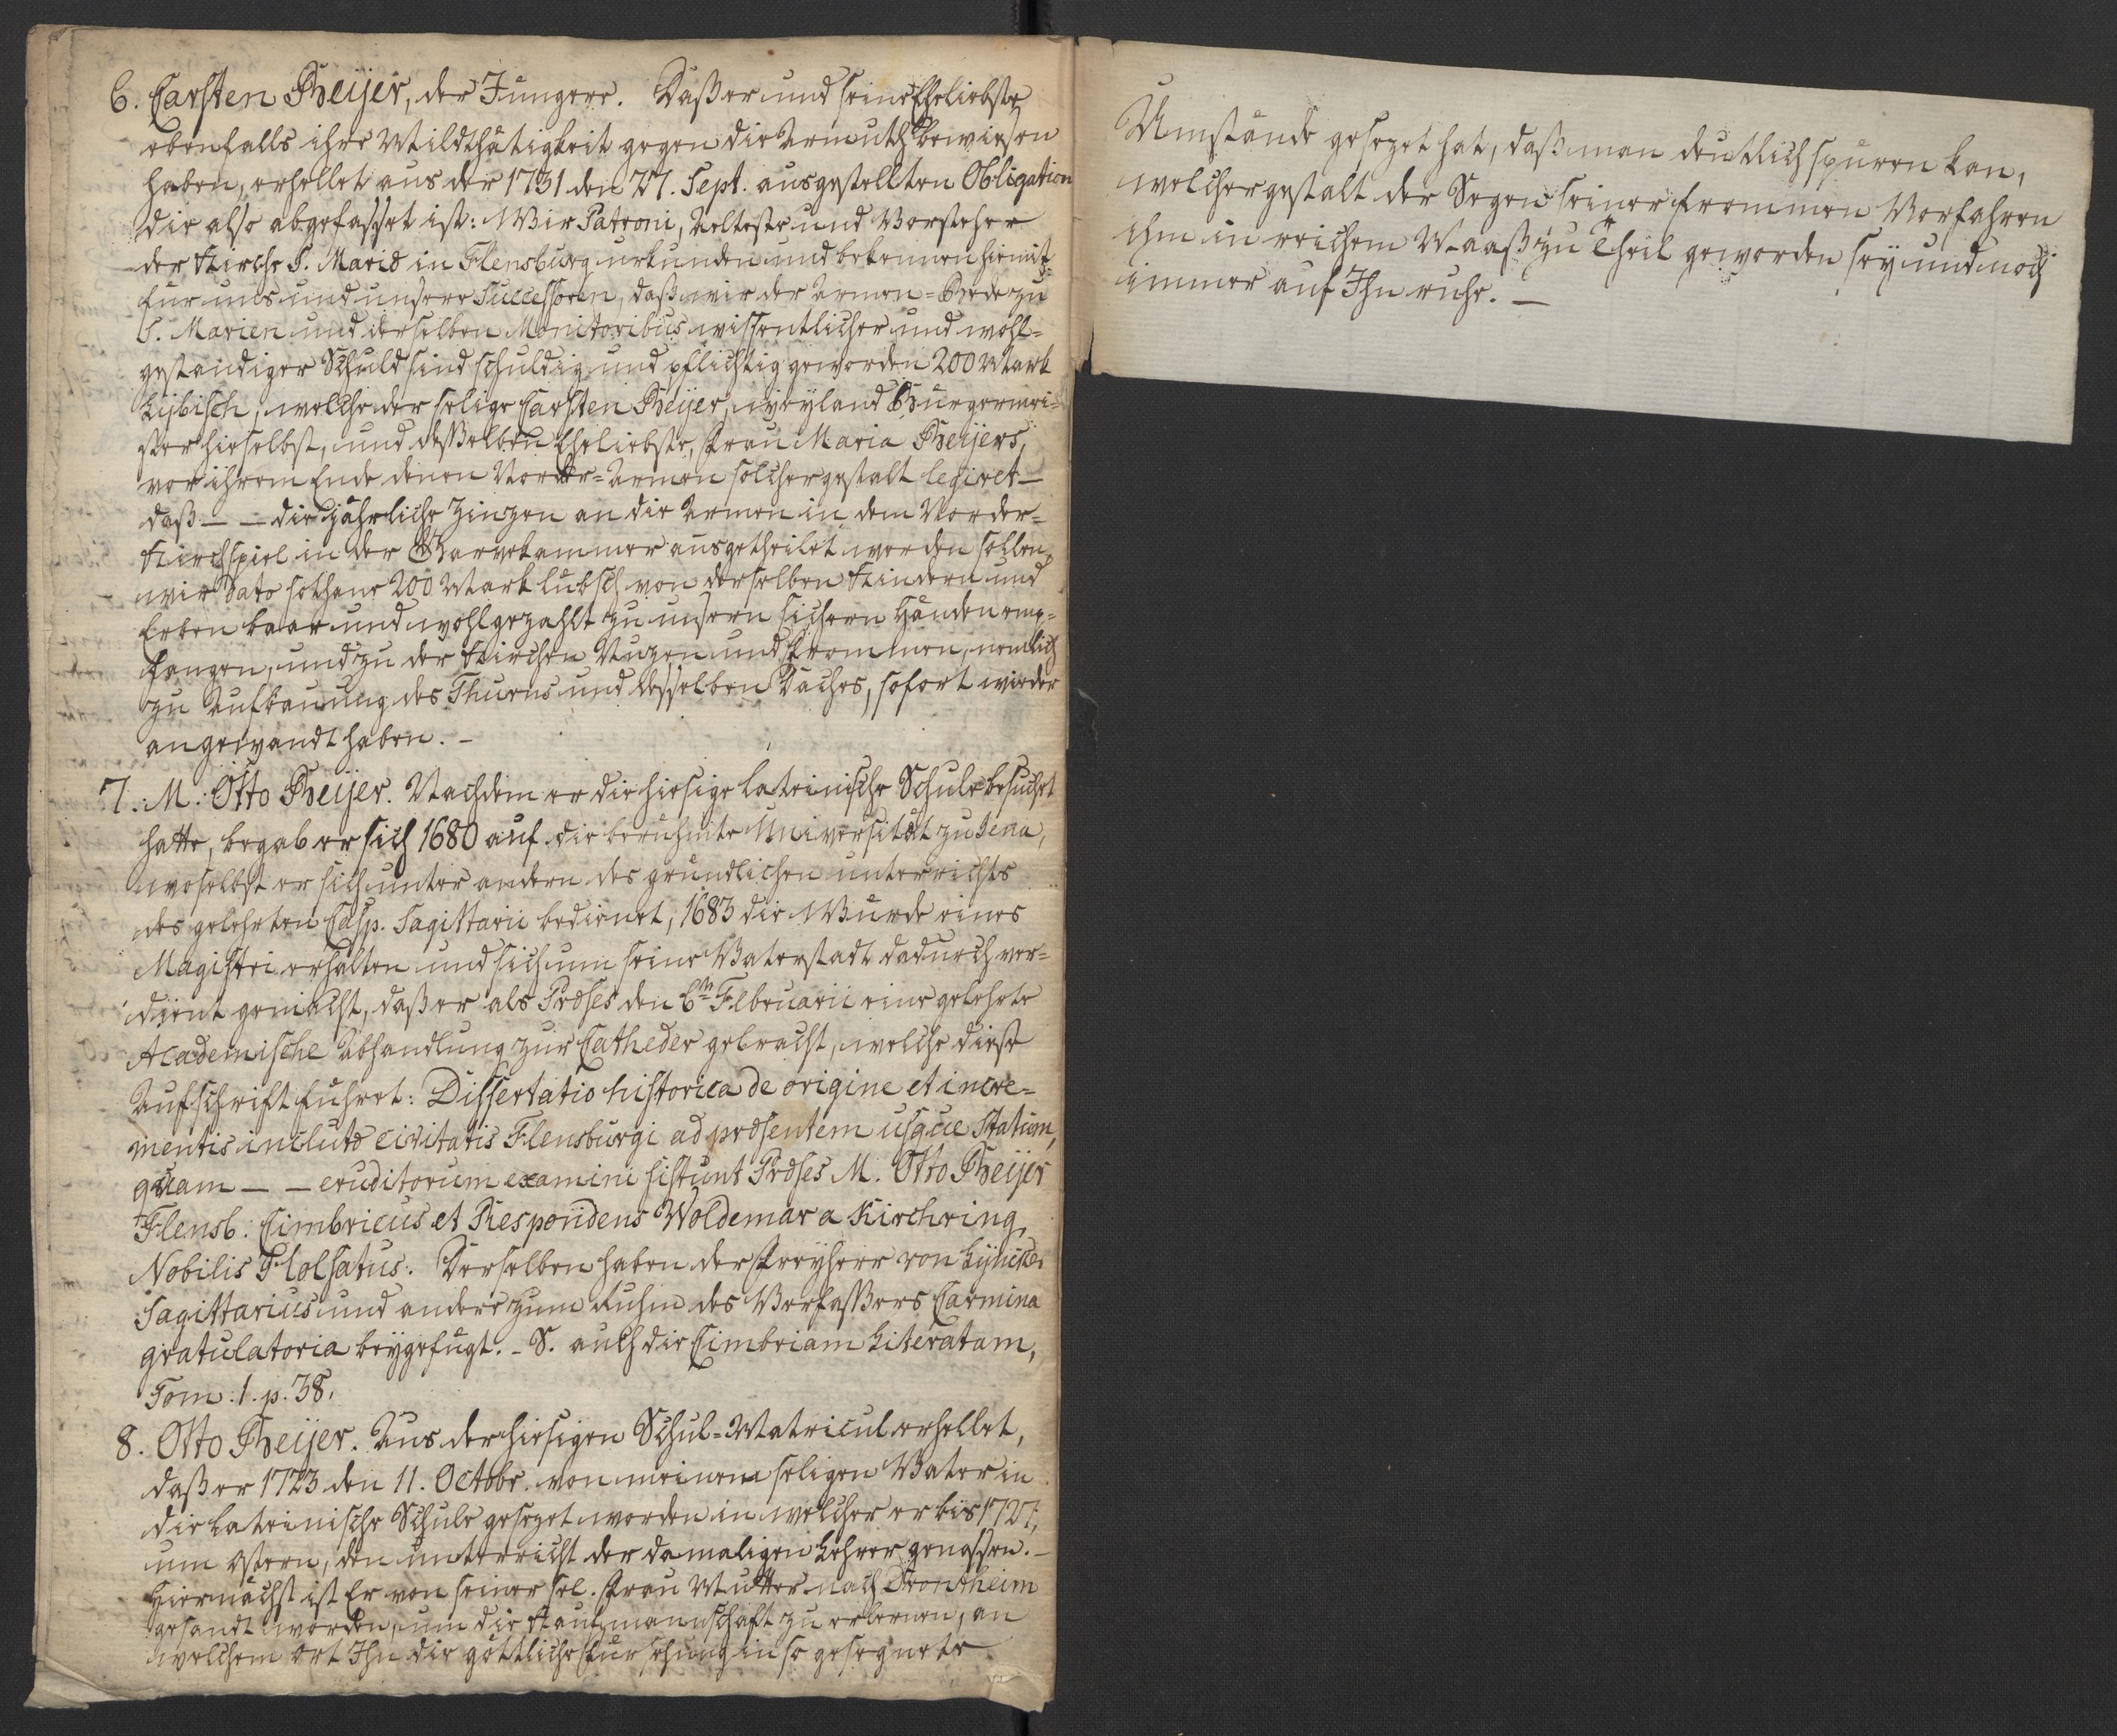 6. Carsten Beijer, der Jüngere. Daß er und seine Eheliebste
ebenfalls ihre Mildthätigkeit gegen die Armuth bewiesen
haben, erhellet aus der 1731 den 27. Sept. ausgestellten Obligation
die also abgefasset ist: Wir Patroni, Aelteste und Vorsteher
der Kirche S. Mariæ in Flensburg urkunden und bekennen hiemit
für uns und unsere Successoren, daß wir der Armen-Bede zu
S. Marien und derselben Monitoribus wissentlicher und wohl=
geständiger Schuld sind schuldig und pflichtig geworden 200 Mark
Lybisch, welche der selige Carsten Beijer, weyland Bürgermei=
ster hieselbst, und deßelben Eheliebste, Frau Maria Beijers,
vor ihrem Ende denen Norder=Armen solchergestalt legiret —
daß — — die jährliche Zinzen an die Armen in dem Norder=
Kirchspiel in der Garvekammer ausgetheilet werden sollen,
wir dato sothane 200 Mark lübsch von derselben Kindern und
Erben baar und wohlgezahlt zu unsern sichern Händen emp=
fangen, und zu der Kirchen Nuzen und Frommen, nemlich
zu Aufbauung des Thurns und desselben Daches, sofort wieder
angewandt haben. —
7. M. Otto Beijer. Nachdem er die hiesige lateinische Schule besuchet
hatte, begab er sich 1680 auf die berühmte Universität zu Jena,
woselbst er sich unter andern des gründlichen unterrichts
des gelehrten Casp. Sagittarii bedienet, 1683 die Würde eines
Magistri erhalten und sich um seine Vaterstadt dadurch ver=
dient gemacht, daß er als Præses den 6ten Februarii eine gelehrte
Academische Abhandlung zur Catheder gebracht, welche diese
Aufschrift führet: Dissertatio historica de origine et incre=
mentis inclutæ civitatis Flensburgi ad præsentem usque statum,
quam — — eruditorum examini sistunt Præses M. Otto Beijer
Flensb. Cimbricus et Respondens Woldemar a Kirchring,
Nobilis Holsatus. Derselben haben der Freyherr von Lyncker
Sagittarius und andere zum Ruhm des Verfaßers Carmina
gratulatoria beygefügt. — S. auch die Cimbriam Literatam,
Tom. 1. p. 38.
8. Otto Beijer. Aus der hiesigen Schul=Matricul erhellet,
daß er 1723 den 11. Octobr. von meinem seligen Vater in
die lateinische Schule gesezet worden in welcher er bis 1727,
um Ostern, den unterricht der damaligen Lehrer genossen. —
Hiernächst ist Er von seiner sel. Frau Mutter nach Drontheim
gesandt worden, um die Kaufmannschaft zu erlernen, an
welchem Ort Ihn die göttliche Fürsehung in so gesegnete
Umstände gesezet hat, daß man deutlich spüren kan,
welchergestalt der Segen seiner frommen Vorfahren
ihm in reichem Maaß zu Theil geworden sey und noch
immer auf Ihn ruhe. —